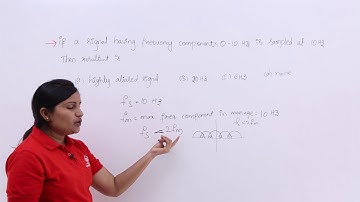 → If a signal having frequency components 0-10 Hz is sampled at 10 Hz
Then resultant is
(a) highly aliased signal (B) 20 Hz (C) 5 Hz (d) none
fs = 10 Hz
fm = max freq component in message = 10 Hz
fs = 2fm